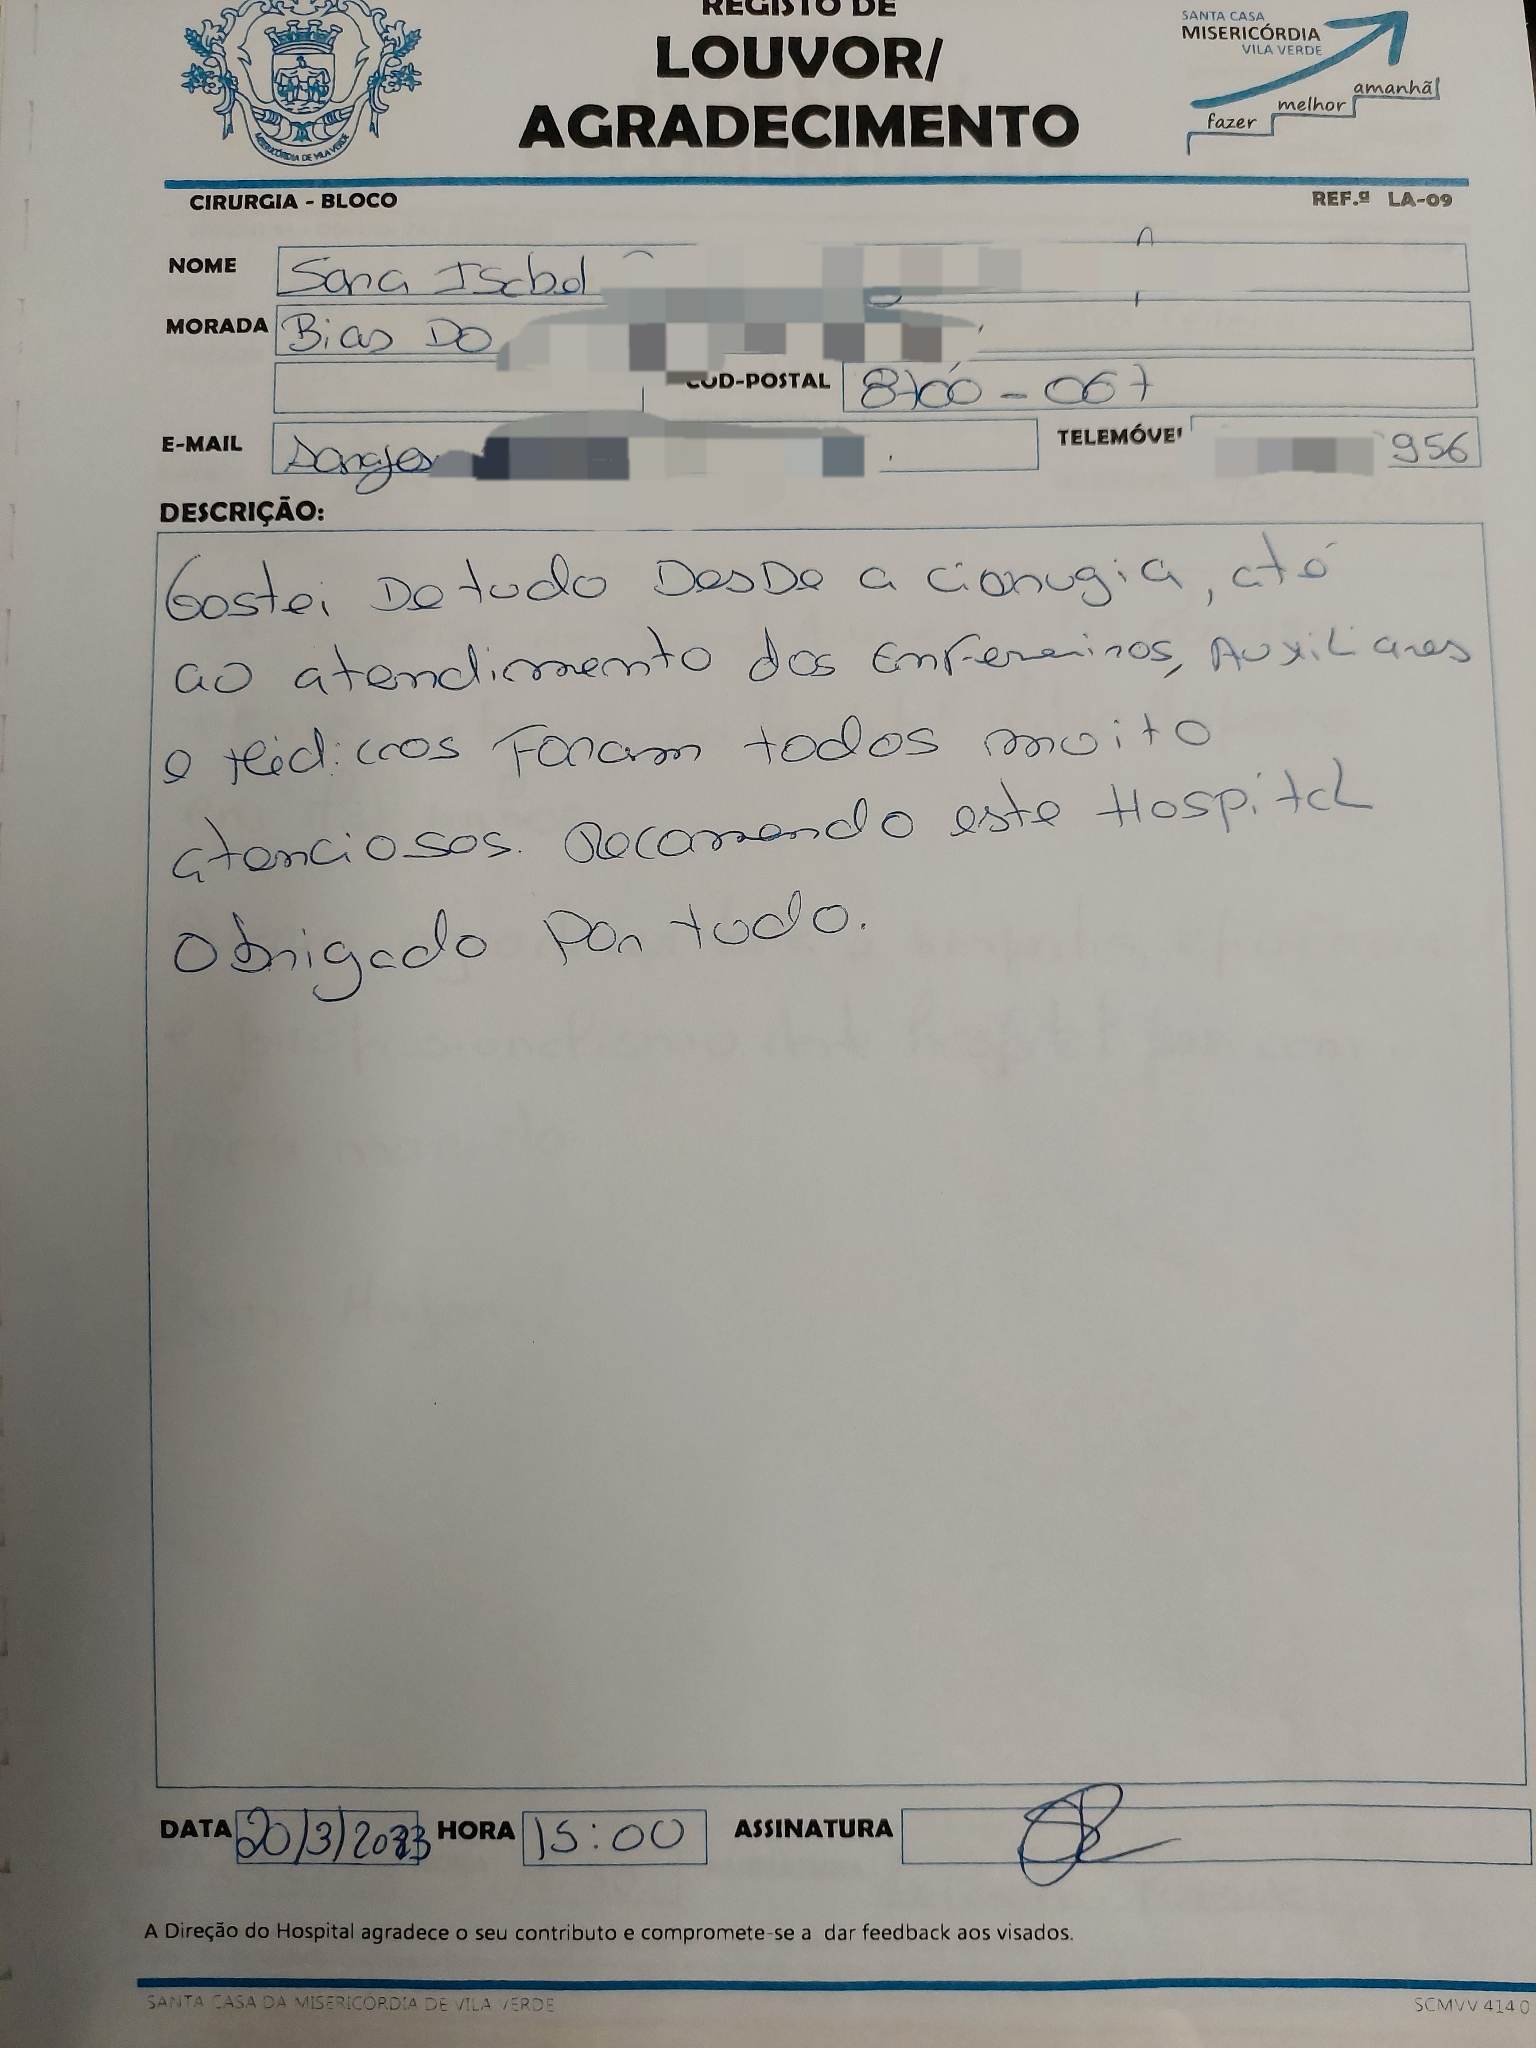 REGISTO DE
LOUVOR/
AGRADECIMENTO
SANTA CASA
MISERICÓRDIA
VILA VERDE
fazer melhor amanhã
MISERICÓRDIA DE VILA VERDE
CIRURGIA - BLOCO REF.ª LA-09
NOME Sara Isabel
MORADA Bias Do
COD-POSTAL 8700-067
E-MAIL TELEMÓVEL 956
DESCRIÇÃO:
Gostei De tudo DesDe a cirrugia, até
ao atendimento dos Enfermeiros, Auxiliares
e Médicos Foram todos muito
atenciosos. Recomendo este Hospital
Obrigado Por tudo.
DATA 20/3/2023 HORA 15:00 ASSINATURA
A Direção do Hospital agradece o seu contributo e compromete-se a dar feedback aos visados.
SANTA CASA DA MISERICÓRDIA DE VILA VERDE SCMVV 414 0